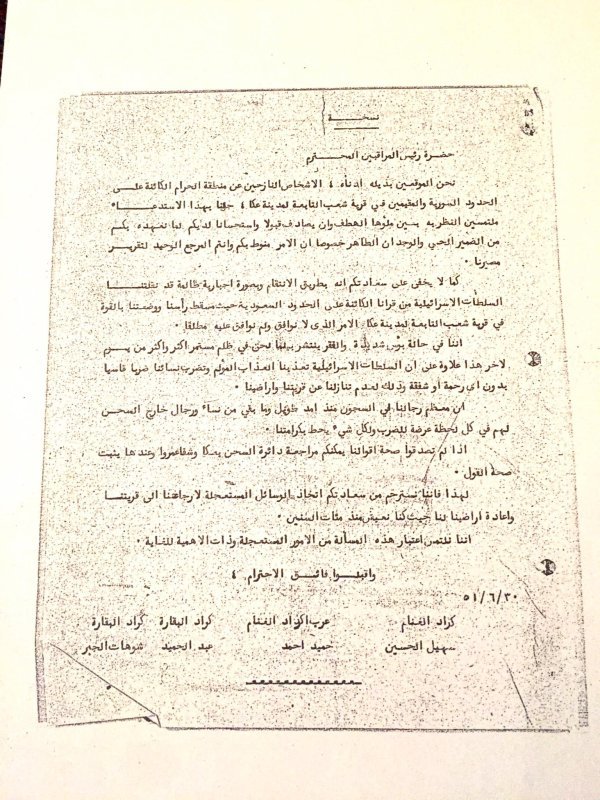 نسخــــة
حضرة رئيس المراقبين المحــــترم
نحن الموقعين بذيله ادناه ٤ الاشخاص النازحين عن منطقة الحرام الكائنة علــى
الحدود السورية والمقيمين في قرية شعب التابعــة لمدينة عكا ٤ جئنا بهذا الاستدعــاء
ملتمسين النظر به بعين ملؤها العطف وان يصادف قبولا واستحسانا لديكم لما نعهده بكم
من الضمير الحي والوجدان الطاهر خصوصا ان الامر منوط بكم وانتم المرجع الوحيد لتقريــر
مصيرنا ٠
كما لا يخفى على سعادتكم انه بطريق الانتقام وبصورة اجبارية ظالمة قد نقلتنــا
السلطات الاسرائيلية من قرانا الكائنة على الحدود السعودية حيث مسقط رأسنا ووضعتنا بالقوة
في قرية شعب التابعــة لمدينة عكا ٠ الامر الذى لا نوافق ولم نوافق عليه مطلقا ٠
اننا في حالة بؤس شديدة والفقر ينتشر بيننا لحق في ظلم مستمر اكثر واكثر من يــوم
لاخر هذا علاوة على ان السلطات الاسرائيلية تعذبنا العذاب المؤلم وتضرب نسائنا ضربا قاسيا
بدون اي رحمة او شفقة وذلك لعدم تنازلنا عن قريتنا واراضينا ٠
ان معظم رجالنا في السجون منذ امد طويل وما بقي من نساء ورجال خارج السجــن
لهم في كل لحظة عرضة للضرب ولكل شيء يحط بكرامتنا ٠
اذا لم تصدقوا صحة اقوالنا يمكنكم مراجعة دائرة السجن بعكا وشفاعمرو وعندها يثبت
صحة القول ٠
لهذا فاننا نسترحم من سعادتكم اتخاذ الوسائل المستعجلة لارجاعنا الى قريتنــا
واعادة اراضينا لنا حيث كنا نعيش منذ مئات السنين ٠
اننا نلتمس اعتبار هذه المسألة من الامور المستعجلة وذات الاهمية للغاية ٠
واقبلــوا فائــق الاحترام ٤
٥١/٦/٣٠
كراد الغنام عرب اكراد الغنام كراد البقارة كراد البقارة
سهيل الحسين حميد احمد عبد الحميد شوهات الجبر